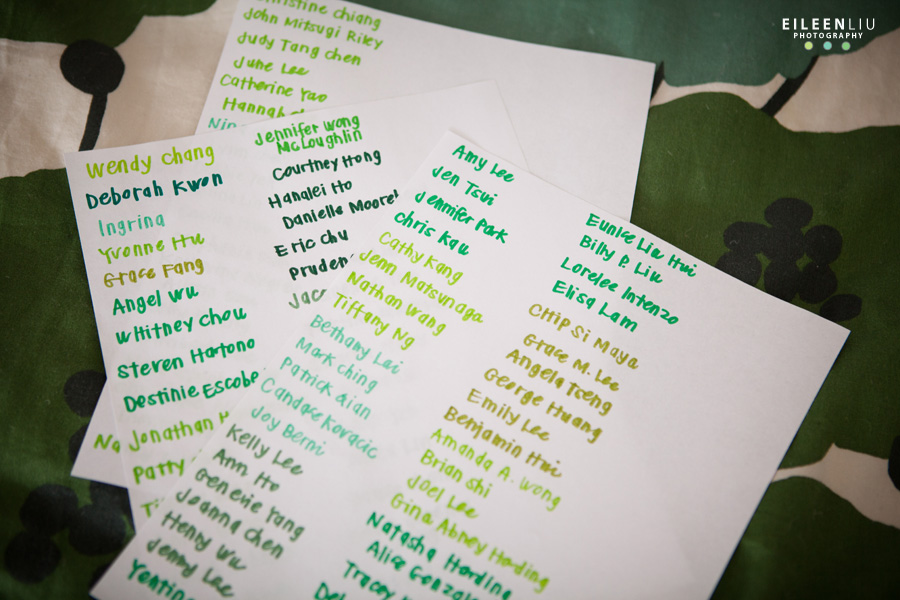 EILEENLIU
PHOTOGRAPHY
Christine Chiang
John Mitsugi Riley
Judy Tang Chen
June Lee
Catherine Yao
Hannah
Wendy Chang
Deborah Kwon
Ingrina
Yvonne Hu
Grace Fang
Angel Wu
Whitney Chou
Steven Hartono
Destinie Escobe
Jonathan H
Patty
Jennifer Wong
McLoughlin
Courtney Hong
Hanalei Ho
Danielle Moore
Eric Chu
Pruden
Jac
Amy Lee
Jen Tsui
Jennifer Park
Chris Kau
Cathy Kang
Jenn Matsunaga
Nathan Wang
Tiffany Ng
Bethany Lai
Mark Ching
Patrick Qian
Candace Kovacic
Joy Berni
Kelly Lee
Ann Ho
Genevie Yang
Joanna Chen
Henry Wu
Jenny Lee
Eunice Liu Hui
Billy P. Liu
Lorelee Intenzo
Elisa Lam
Chip Si Maya
Grace M. Lee
Angela Tseng
George Huang
Emily Lee
Benjamin Hui
Amanda A. Wong
Brian Shi
Joel Lee
Gina Abney Harding
Natasha Harding
Alice Gonzal
Tracey